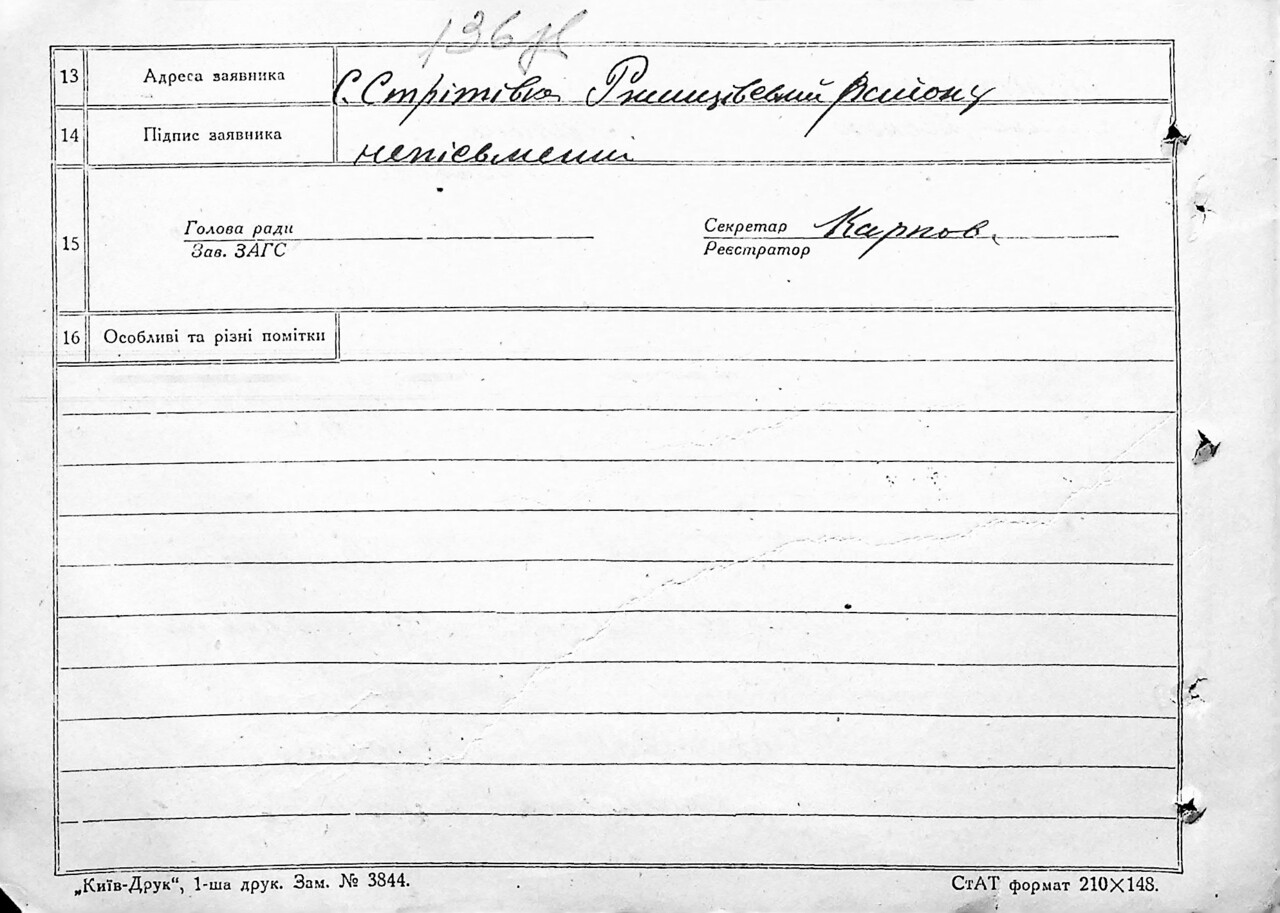 136
13 Адреса заявника С. Стрітівка Ржищівський району
14 Підпис заявника неписьмений
15 Голова ради Секретар Карпов.
Зав. ЗАГС Реєстратор
16 Особливі та різні помітки
„Київ-Друк“, 1-ша друк. Зам. № 3844. СтАТ формат 210×148.